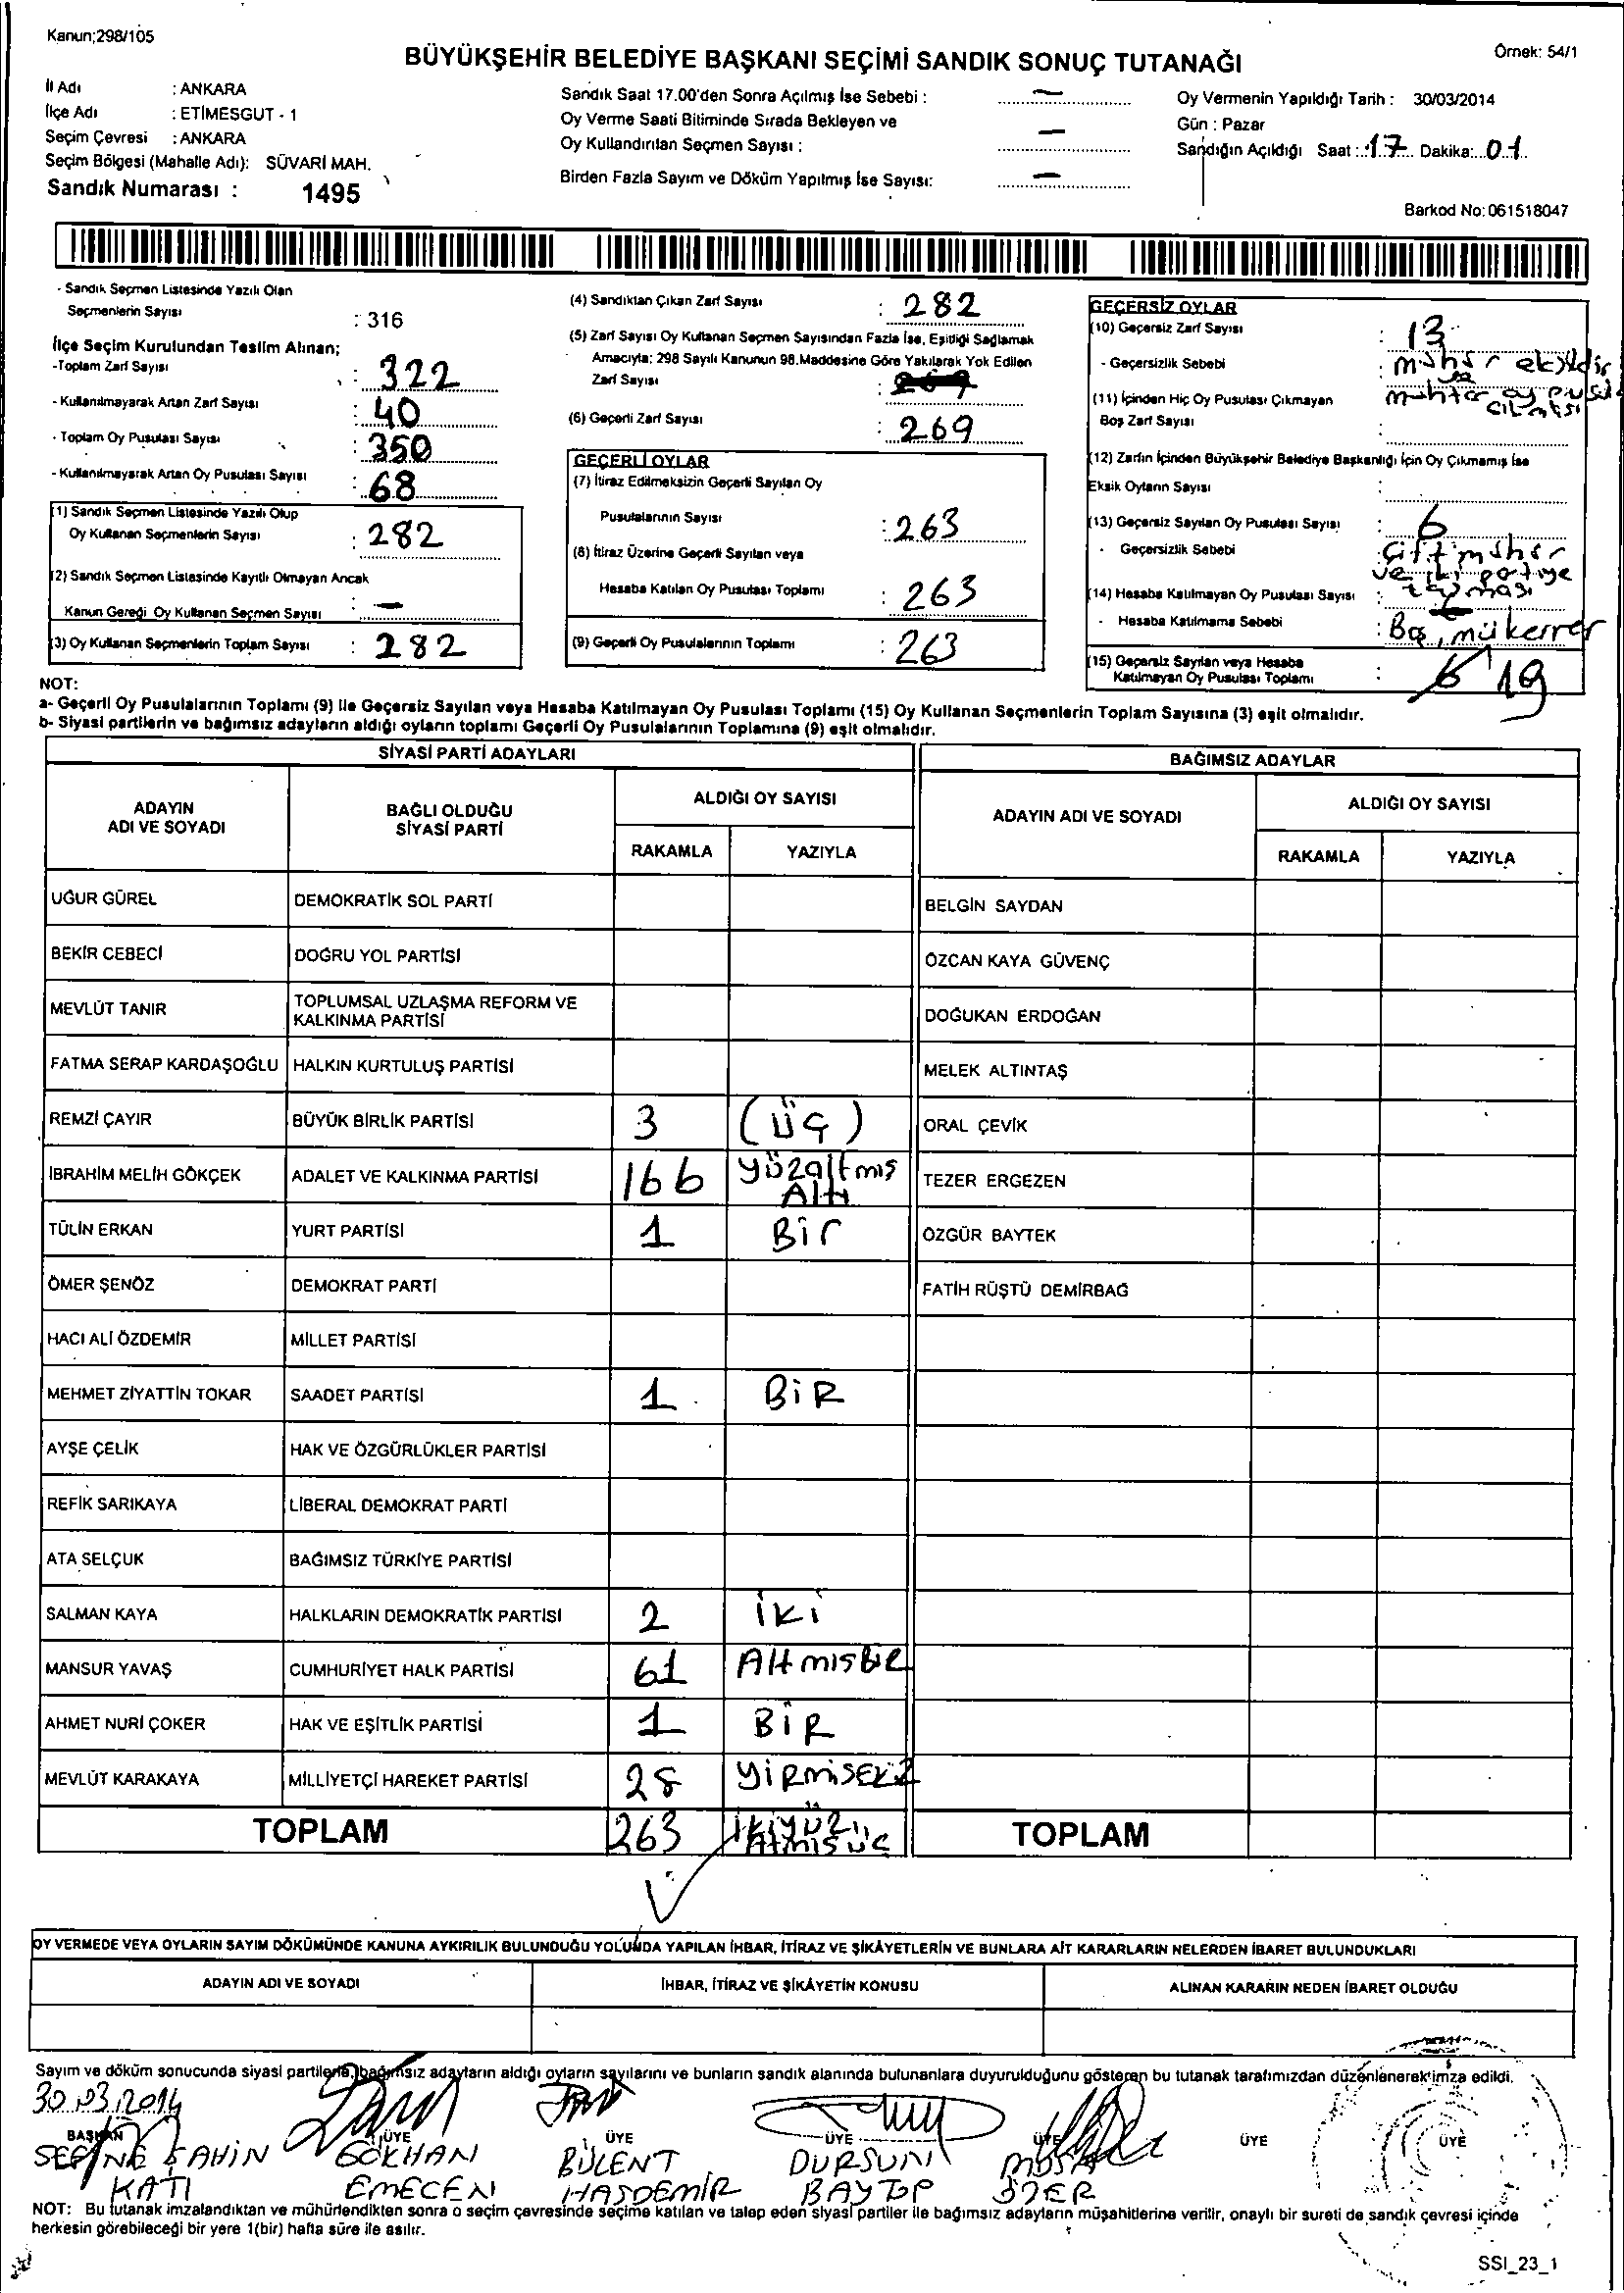 Kanun;298/105
BÜYÜKŞEHİR BELEDİYE BAŞKANI SEÇİMİ SANDIK SONUÇ TUTANAĞI
Örnek: 54/1
İl Adı : ANKARA
İlçe Adı : ETİMESGUT - 1
Seçim Çevresi : ANKARA
Seçim Bölgesi (Mahalle Adı): SÜVARİ MAH.
Sandık Numarası : 1495
Sandık Saat 17.00'den Sonra Açılmış İse Sebebi : —
Oy Verme Saati Bitiminde Sırada Bekleyen ve
Oy Kullandırılan Seçmen Sayısı : —
Birden Fazla Sayım ve Döküm Yapılmış İse Sayısı: —
Oy Vermenin Yapıldığı Tarih : 30/03/2014
Gün : Pazar
Sandığın Açıldığı Saat : 17 Dakika: 01
Barkod No: 061518047
- Sandık Seçmen Listesinde Yazılı Olan
Seçmenlerin Sayısı : 316
İlçe Seçim Kurulundan Teslim Alınan;
-Toplam Zarf Sayısı : 322
- Kullanılmayarak Artan Zarf Sayısı : 40
- Toplam Oy Pusulası Sayısı : 350
- Kullanılmayarak Artan Oy Pusulası Sayısı : 68
(1) Sandık Seçmen Listesinde Yazılı Olup
Oy Kullanan Seçmenlerin Sayısı : 282
(2) Sandık Seçmen Listesinde Kayıtlı Olmayan Ancak
Kanun Gereği Oy Kullanan Seçmen Sayısı : —
(3) Oy Kullanan Seçmenlerin Toplam Sayısı : 282
(4) Sandıktan Çıkan Zarf Sayısı : 282
(5) Zarf Sayısı Oy Kullanan Seçmen Sayısından Fazla İse, Eşitliği Sağlamak
Amacıyla; 298 Sayılı Kanunun 98.Maddesine Göre Yakılarak Yok Edilen
Zarf Sayısı :
(6) Geçerli Zarf Sayısı : 269
GEÇERLİ OYLAR
(7) İtiraz Edilmeksizin Geçerli Sayılan Oy
Pusulalarının Sayısı : 263
(8) İtiraz Üzerine Geçerli Sayılan veya
Hesaba Katılan Oy Pusulası Toplamı : 263
(9) Geçerli Oy Pusulalarının Toplamı : 263
GEÇERSİZ OYLAR
(10) Geçersiz Zarf Sayısı : 13
- Geçersizlik Sebebi : mühür eksikliği
ve
(11) İçinden Hiç Oy Pusulası Çıkmayan muhtar oy pusula
Boş Zarf Sayısı : çıkması
(12) Zarfın İçinden Büyükşehir Belediye Başkanlığı İçin Oy Çıkmamış İse
Eksik Oyların Sayısı :
(13) Geçersiz Sayılan Oy Pusulası Sayısı : 6
- Geçersizlik Sebebi : Çift mühür
ve iki partiye
(14) Hesaba Katılmayan Oy Pusulası Sayısı : taşması
- Hesaba Katılmama Sebebi : Boş, mükerrer
(15) Geçersiz Sayılan veya Hesaba
Katılmayan Oy Pusulası Toplamı : 6 19
NOT:
a- Geçerli Oy Pusulalarının Toplamı (9) ile Geçersiz Sayılan veya Hesaba Katılmayan Oy Pusulası Toplamı (15) Oy Kullanan Seçmenlerin Toplam Sayısına (3) eşit olmalıdır.
b- Siyasi partilerin ve bağımsız adayların aldığı oyların toplamı Geçerli Oy Pusulalarının Toplamına (9) eşit olmalıdır.
SİYASİ PARTİ ADAYLARI
BAĞIMSIZ ADAYLAR
ADAYIN ADI VE SOYADI
BAĞLI OLDUĞU SİYASİ PARTİ
ALDIĞI OY SAYISI
RAKAMLA YAZIYLA
ADAYIN ADI VE SOYADI
ALDIĞI OY SAYISI
RAKAMLA YAZIYLA
UĞUR GÜREL DEMOKRATİK SOL PARTİ BELGİN SAYDAN
BEKİR CEBECİ DOĞRU YOL PARTİSİ ÖZCAN KAYA GÜVENÇ
MEVLÜT TANIR TOPLUMSAL UZLAŞMA REFORM VE KALKINMA PARTİSİ DOĞUKAN ERDOĞAN
FATMA SERAP KARDAŞOĞLU HALKIN KURTULUŞ PARTİSİ MELEK ALTINTAŞ
REMZİ ÇAYIR BÜYÜK BİRLİK PARTİSİ 3 (ÜÇ) ORAL ÇEVİK
İBRAHİM MELİH GÖKÇEK ADALET VE KALKINMA PARTİSİ 166 yüzaltmış Altı TEZER ERGEZEN
TÜLİN ERKAN YURT PARTİSİ 1 Bir ÖZGÜR BAYTEK
ÖMER ŞENÖZ DEMOKRAT PARTİ FATİH RÜŞTÜ DEMİRBAĞ
HACI ALİ ÖZDEMİR MİLLET PARTİSİ
MEHMET ZİYATTİN TOKAR SAADET PARTİSİ 1 BİR
AYŞE ÇELİK HAK VE ÖZGÜRLÜKLER PARTİSİ
REFİK SARIKAYA LİBERAL DEMOKRAT PARTİ
ATA SELÇUK BAĞIMSIZ TÜRKİYE PARTİSİ
SALMAN KAYA HALKLARIN DEMOKRATİK PARTİSİ 2 İKİ
MANSUR YAVAŞ CUMHURİYET HALK PARTİSİ 61 Altmışbir
AHMET NURİ ÇOKER HAK VE EŞİTLİK PARTİSİ 1 BİR
MEVLÜT KARAKAYA MİLLİYETÇİ HAREKET PARTİSİ 28 YİRMİSEKİZ
TOPLAM 263 İKİYÜZ Atmışüç TOPLAM
OY VERMEDE VEYA OYLARIN SAYIM DÖKÜMÜNDE KANUNA AYKIRILIK BULUNDUĞU YOLUNDA YAPILAN İHBAR, İTİRAZ VE ŞİKÂYETLERİN VE BUNLARA AİT KARARLARIN NELERDEN İBARET BULUNDUKLARI
ADAYIN ADI VE SOYADI İHBAR, İTİRAZ VE ŞİKÂYETİN KONUSU ALINAN KARARIN NEDEN İBARET OLDUĞU
Sayım ve döküm sonucunda siyasi partilerle, bağımsız adayların aldığı oyların sayılarını ve bunların sandık alanında bulunanlara duyurulduğunu gösteren bu tutanak tarafımızdan düzenlenerek imza edildi.
30.03.2014
BAŞKAN ÜYE ÜYE ÜYE ÜYE ÜYE ÜYE
ŞAHİN GÖKHAN BÜLENT DURSUN MUSA
KATI EMECEN HASDEMİR BAYTOP ÖZER
NOT: Bu tutanak imzalandıktan ve mühürlendikten sonra o seçim çevresinde seçime katılan ve talep eden siyasi partiler ile bağımsız adayların müşahitlerine verilir, onaylı bir sureti de sandık çevresi içinde
herkesin görebileceği bir yere 1(bir) hafta süre ile asılır.
SSI_23_1